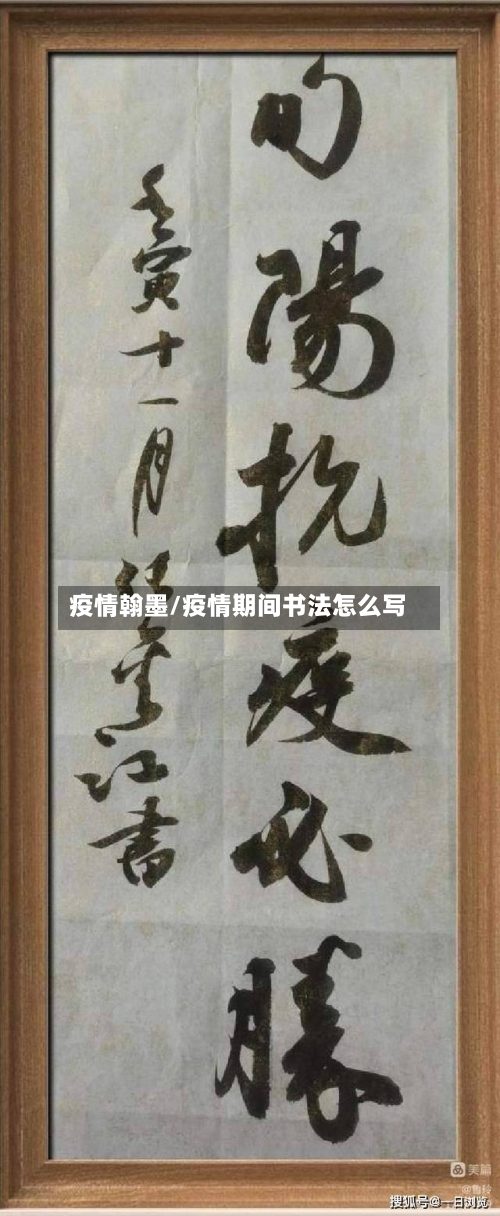 旬陽抗疫必勝
壬寅十一月
江書
疫情翰墨/疫情期间书法怎么写
美篇
搜狐号@一日浏览